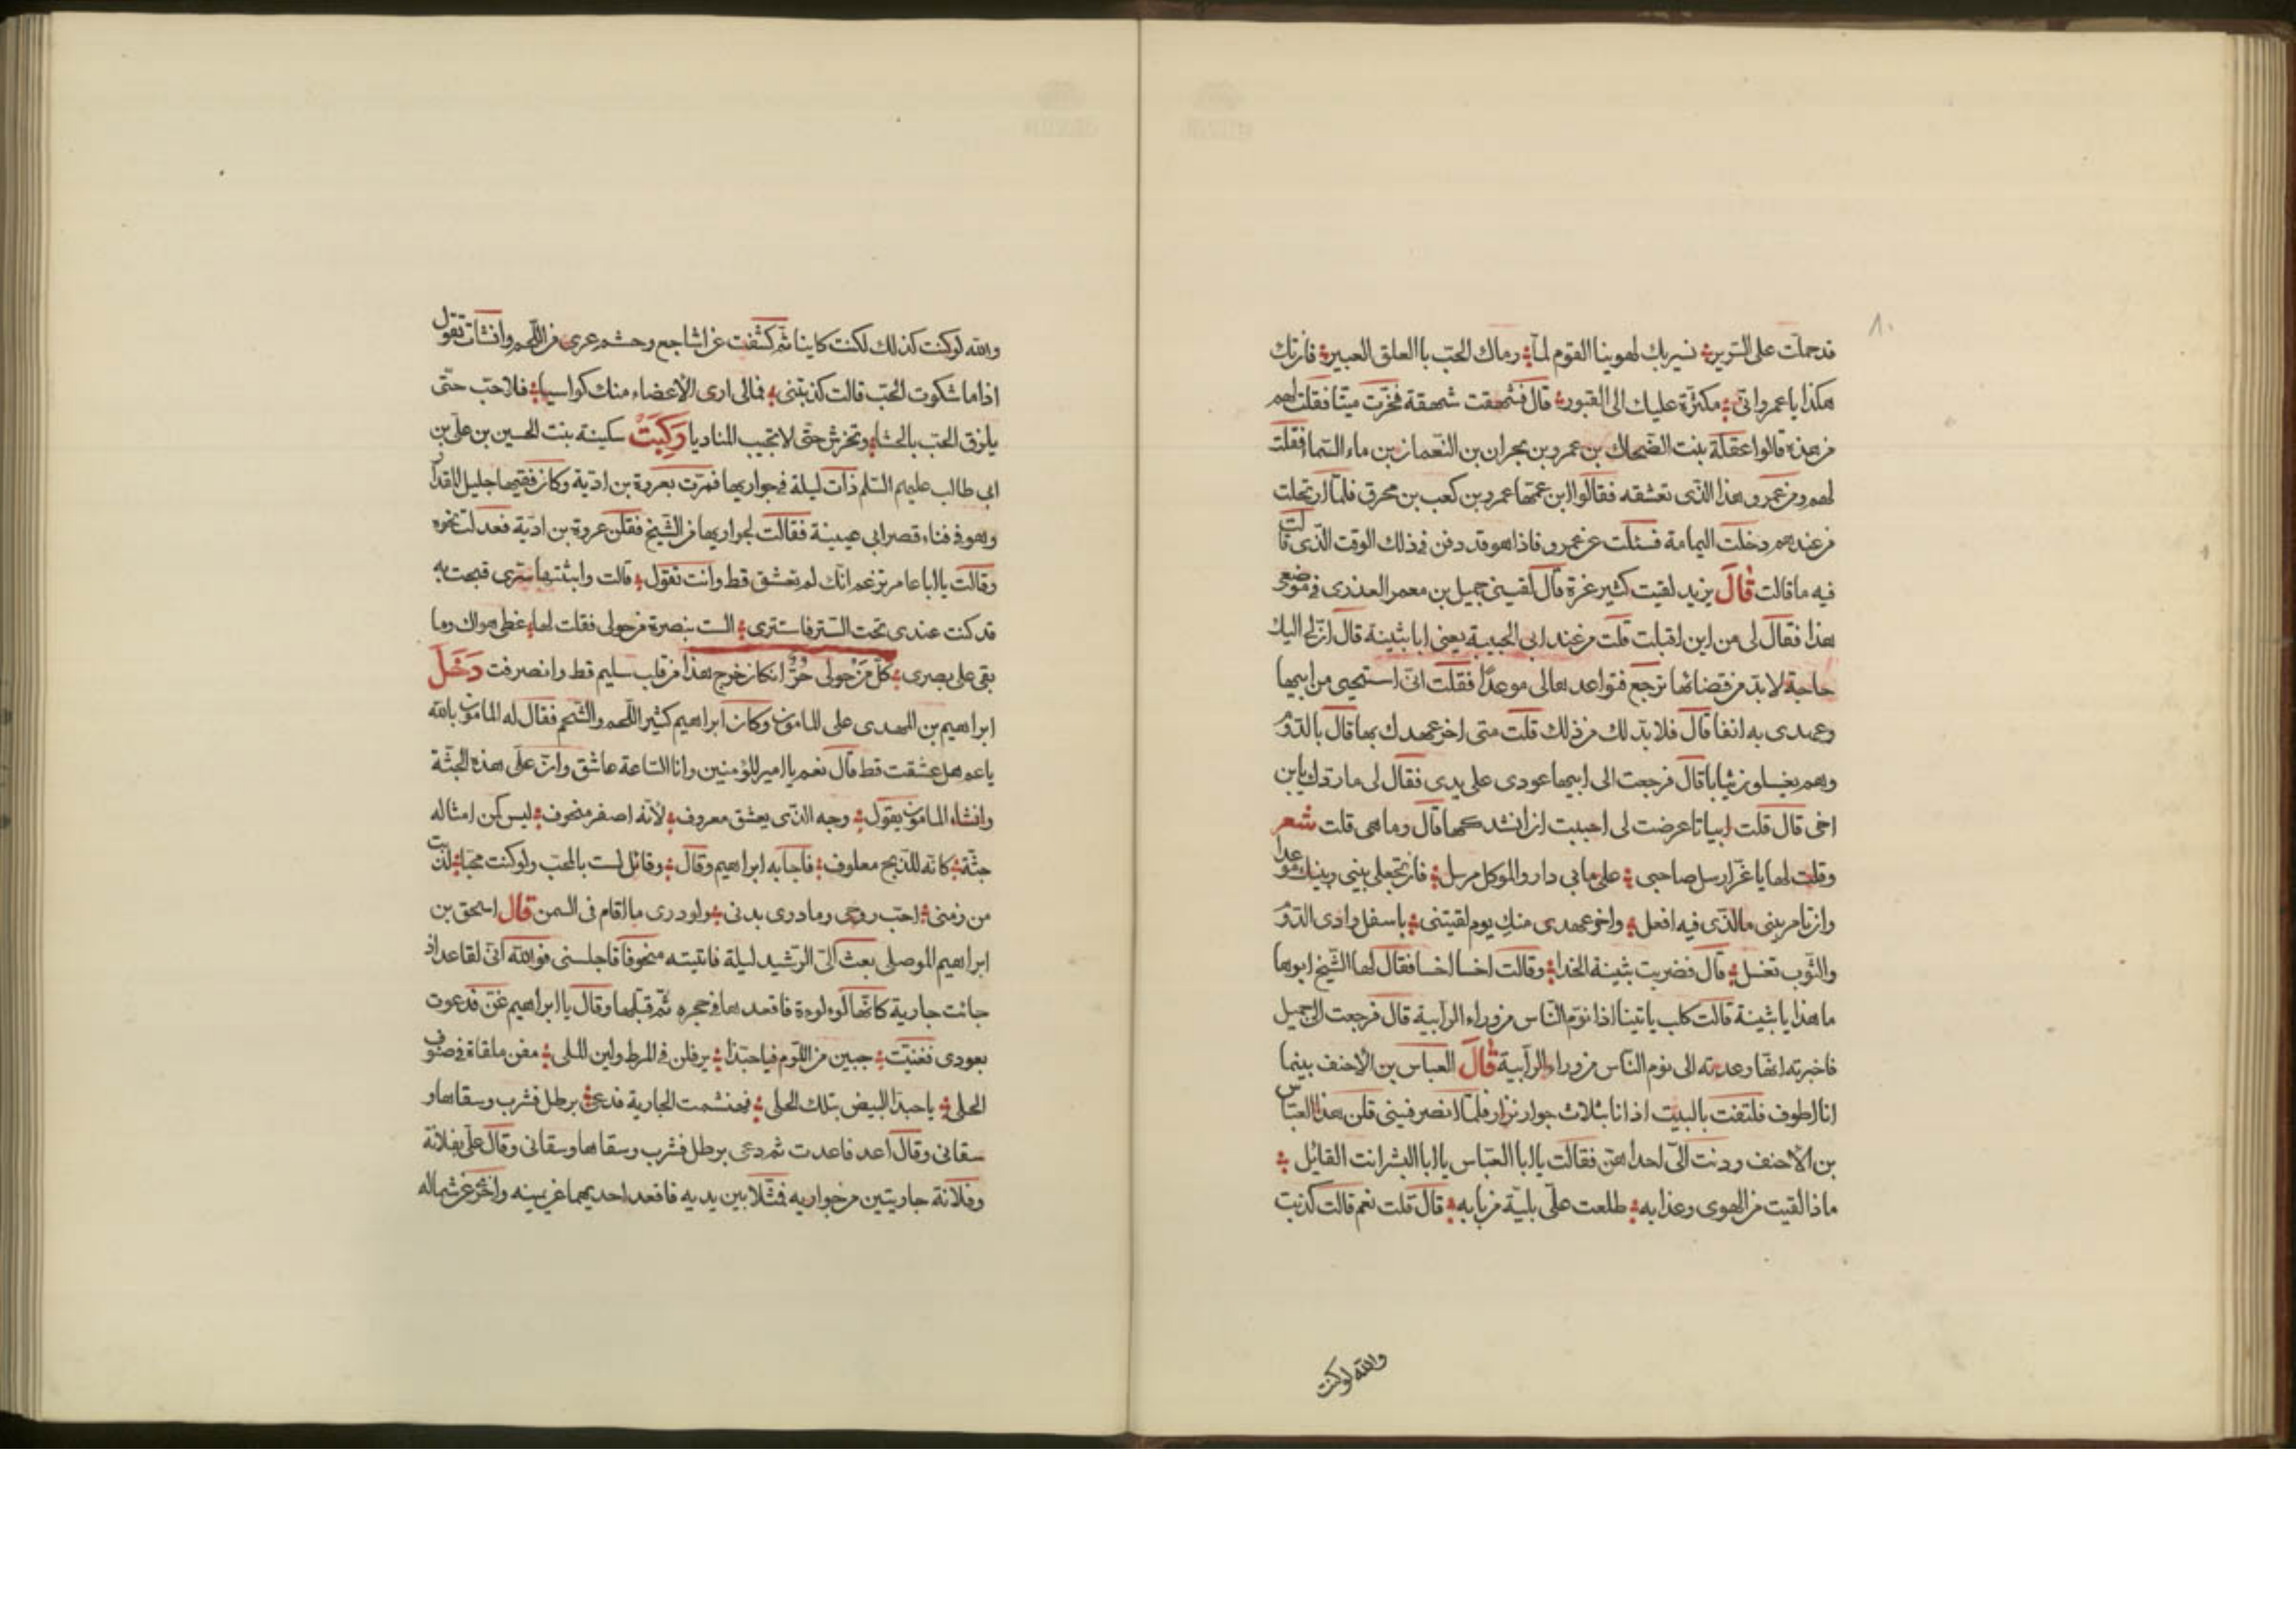 ١٠
قد حملت على السرير ؞ نسير بك لهوينا القوم لما ؞ رماك الحبّ باالعلق العبير ؞ فان تك
هكذا يا عمرو انّى ؞ مكثرة عليك الى القبور ؞ قال فشهقت شهقة فخرّت ميتا فقلت لهم
من هذه قالوا عقلة بنت الضحاك بن عمرو بن بحران بن النّعمان بن ماء السّما فقلت
لهم ومن عمرو هذا الذّى تعشقه فقالوا ابن عمّها عمرو بن كعب بن محرق فلمّا ارتحلت
من عندهم دخلت اليمامة فسئلت عن عمرو فاذا هو قد دفن فى ذلك الوقت الذّى قالت
فيه ما قالت قال يزيد لقيت كثير غرة قال لقينى جميل بن معمر العذرى فى موضعى
هذا فقال لى من اين اقبلت قلت من عند ابى الحبيبة يعنى ابا بثينة قال انّ لى اليك
حاجة لا بدّ من قضائها ترجع فتواعدها لى موعدًا فقلت انّى استحيى من ابيها
وعهدى به انفا قال فلا بد لك من ذلك قلت متى اخر عهدك بها قال بالدّوْ
وهم يغسلون ثيابا قال فرجعت الى ابيها عودى على يدى فقال لى ما ردّك يا بن
اخى قال قلت ابياتا عرضت لى احببت ان انشدكها قال وما هى قلت شعر
وقلت لها يا غرّ ارسل صاحبى ؞ على مابى دار والموكل مرسل ؞ فان تجعلى بينى وبينك موعدا
وان تامرينى مالذّى فيه افعل ؞ واخر عهدى منك يوم لقيتنى ؞ باسفل وادى الدّوْ
والثّوب تغسل ؞ قال فضربت بثينة الخدا ؞ وقالت اخسا اخسا فقال لها الشّيخ ابوها
ما هذا يا بثينة قالت كلب ياتينا اذا نوّم النّاس من وراء الرابية قال فرجعت الى جميل
فاخبرته انها وعدته الى نوم النّاس من وراء الرابية قال العباس بن الاحنف بينما
انا اطوف فلتفت بالبيت اذ انا بثلاث جوار نزار فلمّا انصرفينى قلن هذا العبّاس
بن الاحنف ودنت الىّ احداهنّ فقالت ياابا العبّاس ياابا البشر انت القائل ؞
ماذا لقيت من الهوى وعذابه ؞ طلعت علّى بليّة من بابه ؞ قال قلت نعم قالت كذبت
والله لو كنت
والله لو كنت كذلك لكنت كاينا ثمّ كشفت عن اشاجع وحشم عرى من اللّحم وانشأت تقول
اذا ما شكوت الحبّ قالت كذبتنى ؞ فمالى ارى الاعضاء منك كواسيا ؞ فلا حبّ حتّى
يلزق الحبّ بالحشا ؞ وتخرش حتّى لا تجيب المناديا ركبت سكينة بنت الحسين بن على بن
ابى طالب عليهم السّلم ذات ليلة فى جواريها فمرّت بعروة بن ادّية وكان فقيها جليل القدر
وهو فى فناء قصر ابى عيينة فقالت لجواريها من الشّيخ فقلن عروة بن ادّية فعدلت نحوه
وقالت ياابا عامر تزعم انّك لم تعشق قط وانت تقول ؞ قالت وابثثتها سترى قبحت به
قد كنت عندى تحت السّتر فاستترى ؞ الست بنصرة من حولى فقلت لها ؞ غطى هواك وما
بقى على بصرى ؞ كلّ من حولى حُرٌّ ان كان خرج هذا من قلب سليم قط وانصرفت دَخَلَ
ابراهيم بن المهدى على المامون وكان ابراهيم كثير اللّحم والشّحم فقال له المامون بالله
يا عم هل عشقت قط قال نعم ياامير المؤمنين وانا السّاعة عاشق وانت على هذه الجثّة
وانشاء المامون يقول ؞ وجه الذّى يعشق معروف ؞ لانّه اصفر منحوف ؞ ليس كمن امثاله
جثّة ؞ كانّه للذّبح معلوف ؞ فاجابه ابراهيم وقال ؞ وقائل لست بالمحبّ ولو كنت محبّا ؞ لذبت
من زمنى ؞ احبّ روحى وما درى بدنى ؞ ولو درى ما اقام فى السمن قال اسحق بن
ابراهيم الموصلى بعث الىّ الرّشيد ليلة فاتيته منحوفا فاجلسنى فوالله انّى لقاعد اذ
جائت جارية كانّها لوءلوءة فاقعدها فى حجره ثمّ قبّلها وقال ياابراهيم غنّ فدعوت
بعودى فغنيّت ؞ جبين من اللّوم فيا حبّذا ؞ يرفلن فى المرط ولين الملى ؞ مفن ملقاة فى صنوف
الحلى ؞ يا حبذا البيض بتلك الحلى ؞ فجنشمت الجارية فدعى ؞ برطل فشرب وسقاها و
سقانى وقال اعد فاعدت ثم دعى برطل فشرب وسقاها وسقانى وقال علّى بفلانة
وفلانة جاريتين من جواريه فمثّلا بين يديه فاقعد احديهما عن يمينه واخرى عن شماله